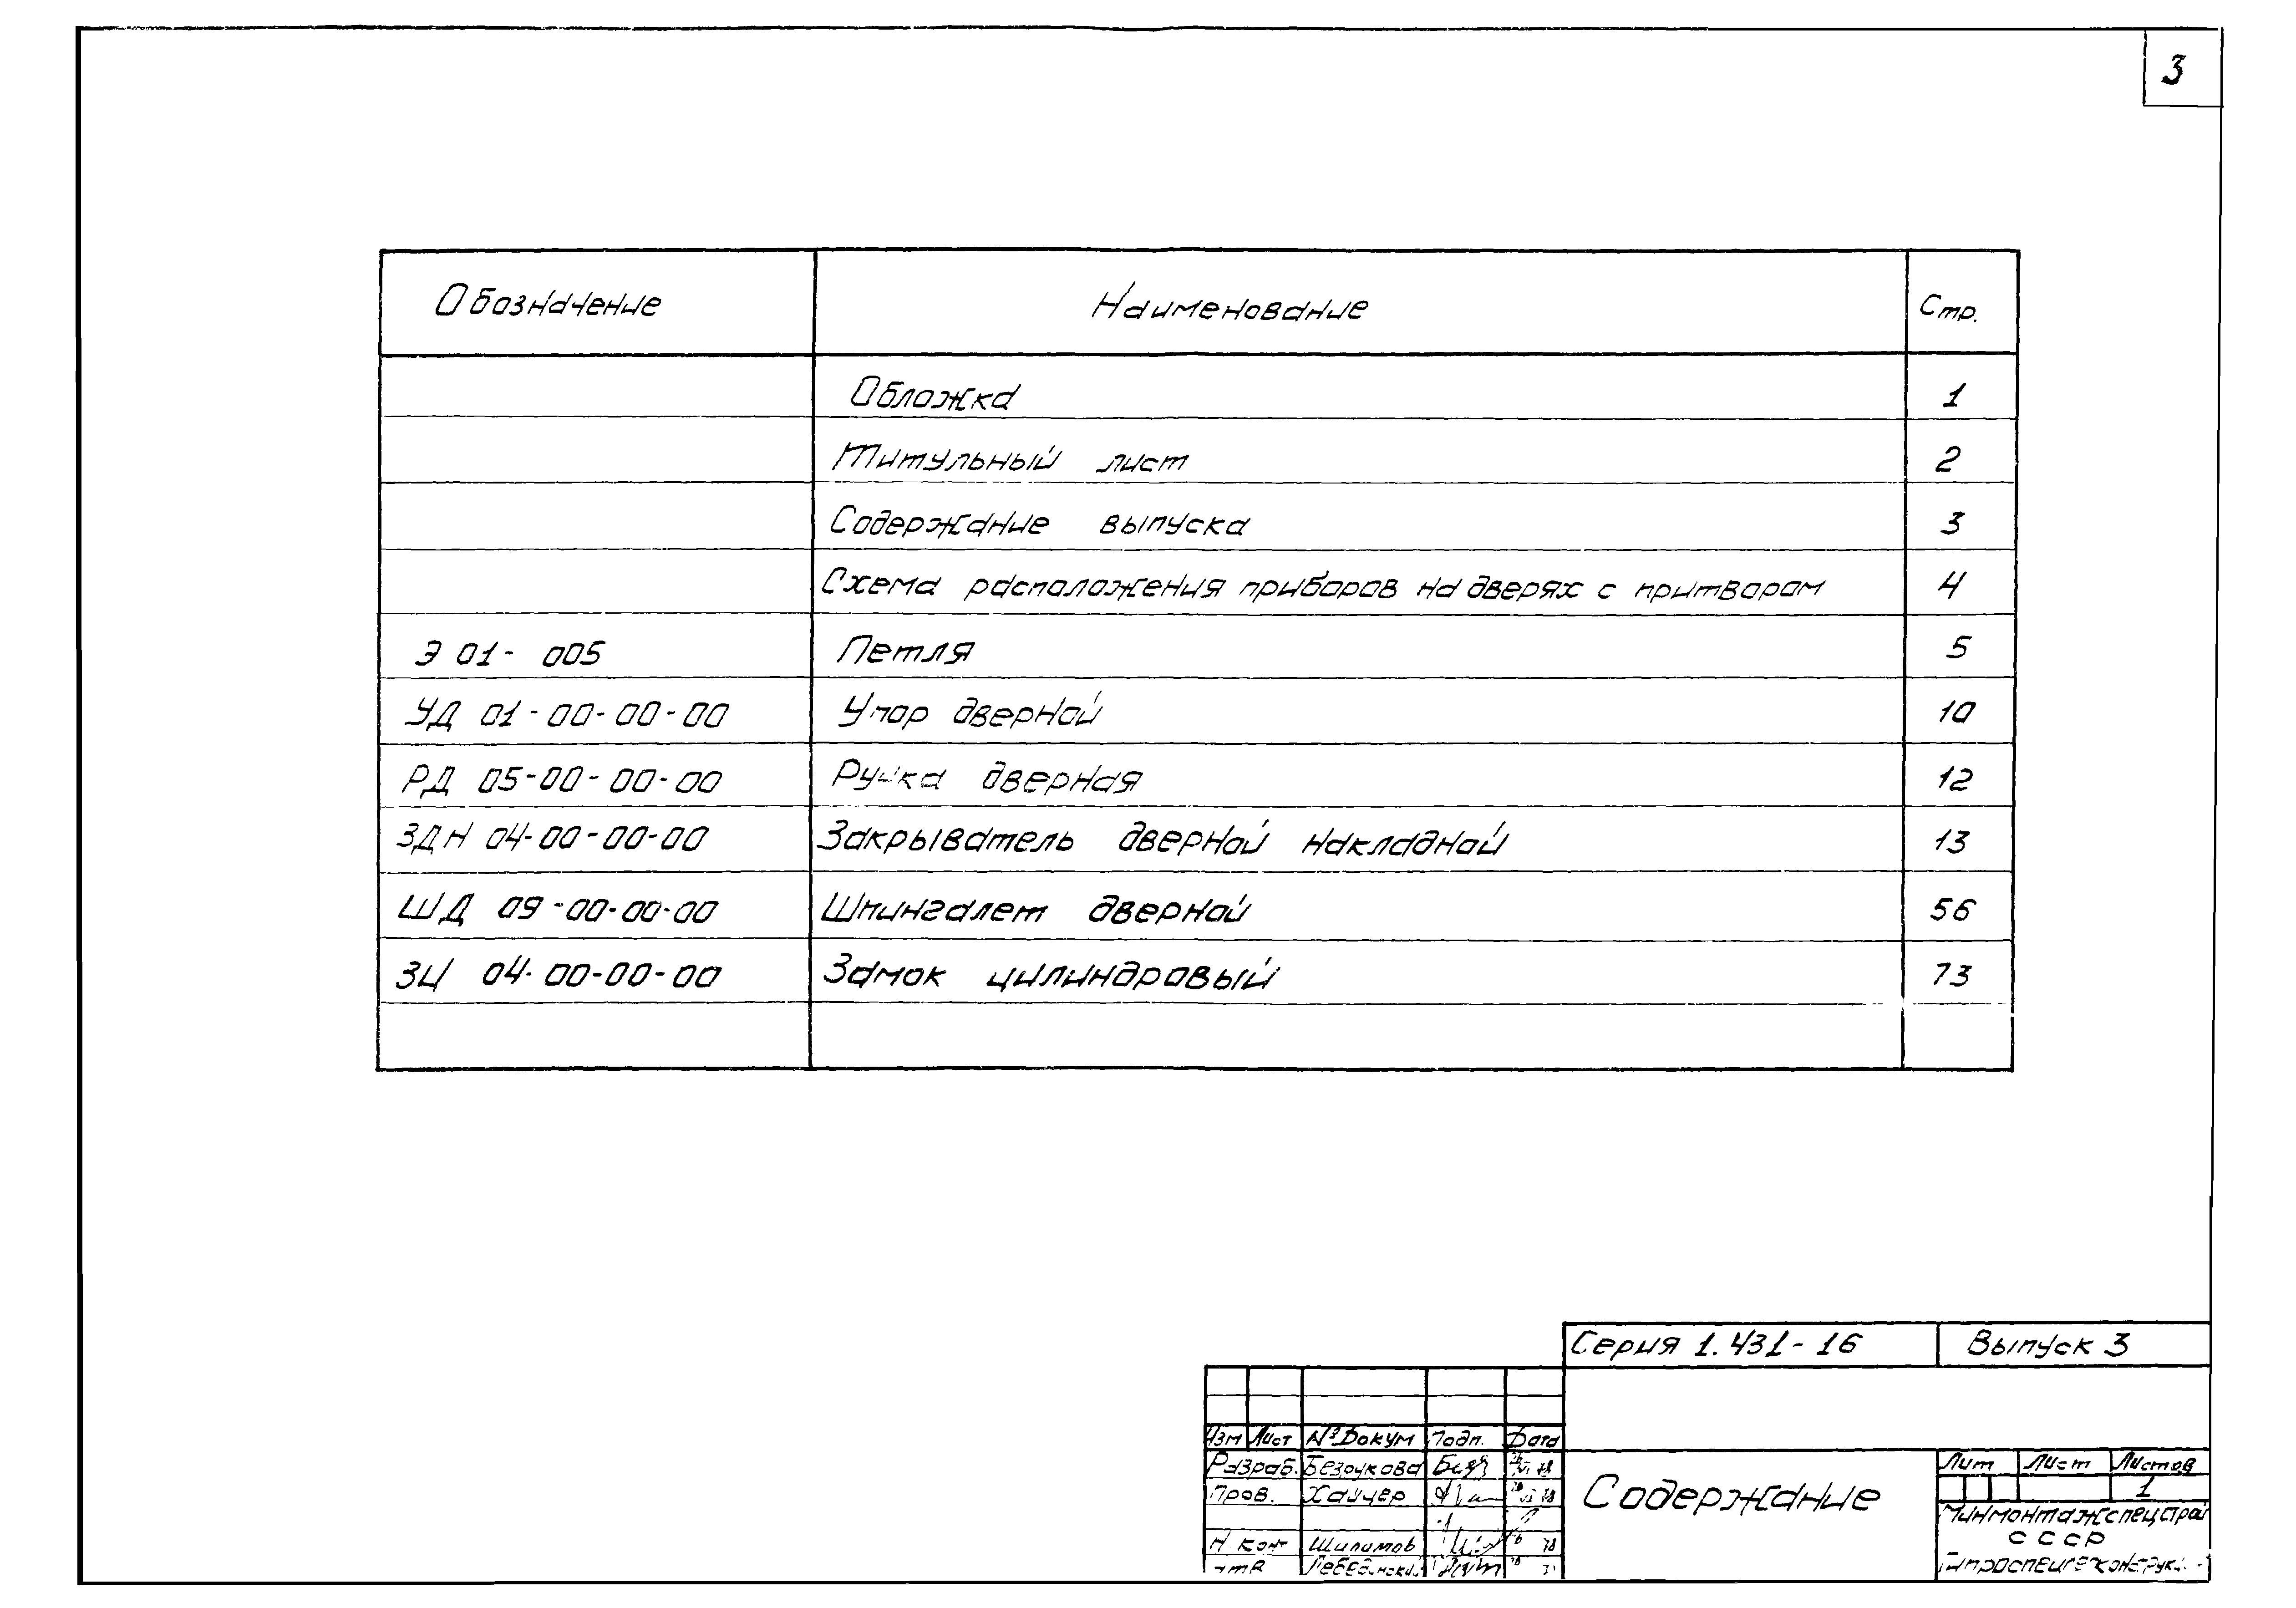 3
Обозначение Наименование Стр.
Обложка 1
Титульный лист 2
Содержание выпуска 3
Схема расположения приборов на дверях с притвором 4
Э 01- 005 Петля 5
УД 01-00-00-00 Упор дверной 10
РД 05-00-00-00 Ручка дверная 12
ЗДН 04-00-00-00 Закрыватель дверной накладной 13
ШД 09-00-00-00 Шпингалет дверной 56
ЗЦ 04-00-00-00 Замок цилиндровый 73
Серия 1.431-16 Выпуск 3
Изм Лист № Докум Подп. Дата
Разраб. Безрукова
Пров. Хайцер
Н конт Шипамов
Содержание
Лит Лист Листов
1
Минмонтажспецстрой
СССР